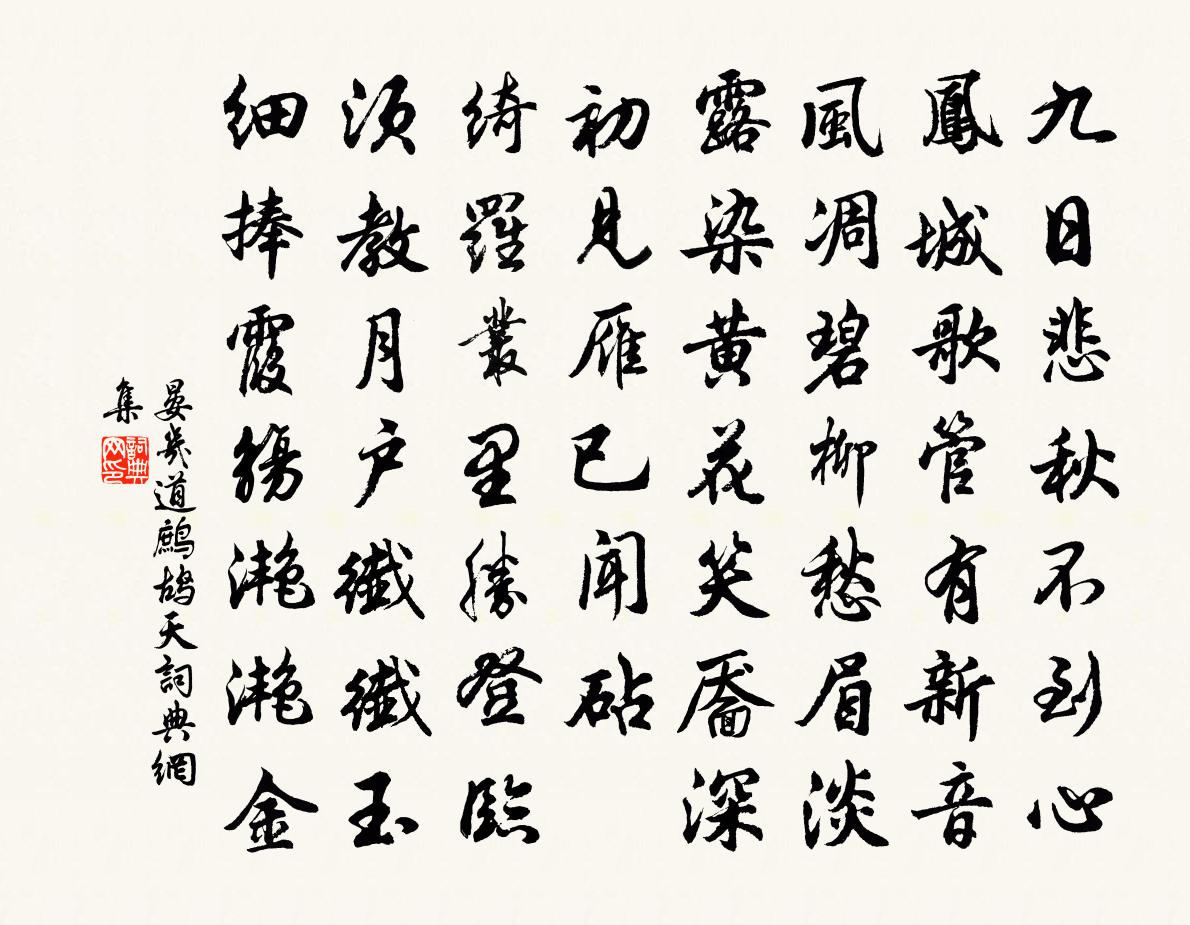 九日悲秋不到心
鳳城歌管有新音
風凋碧柳愁眉淡
露染黃花笑靨深
初見雁已聞砧
綺羅叢里勝登臨
須教月戶纖纖玉
細捧霞觴灧灧金
晏幾道鷓鴣天詞典網
集
詞典網印